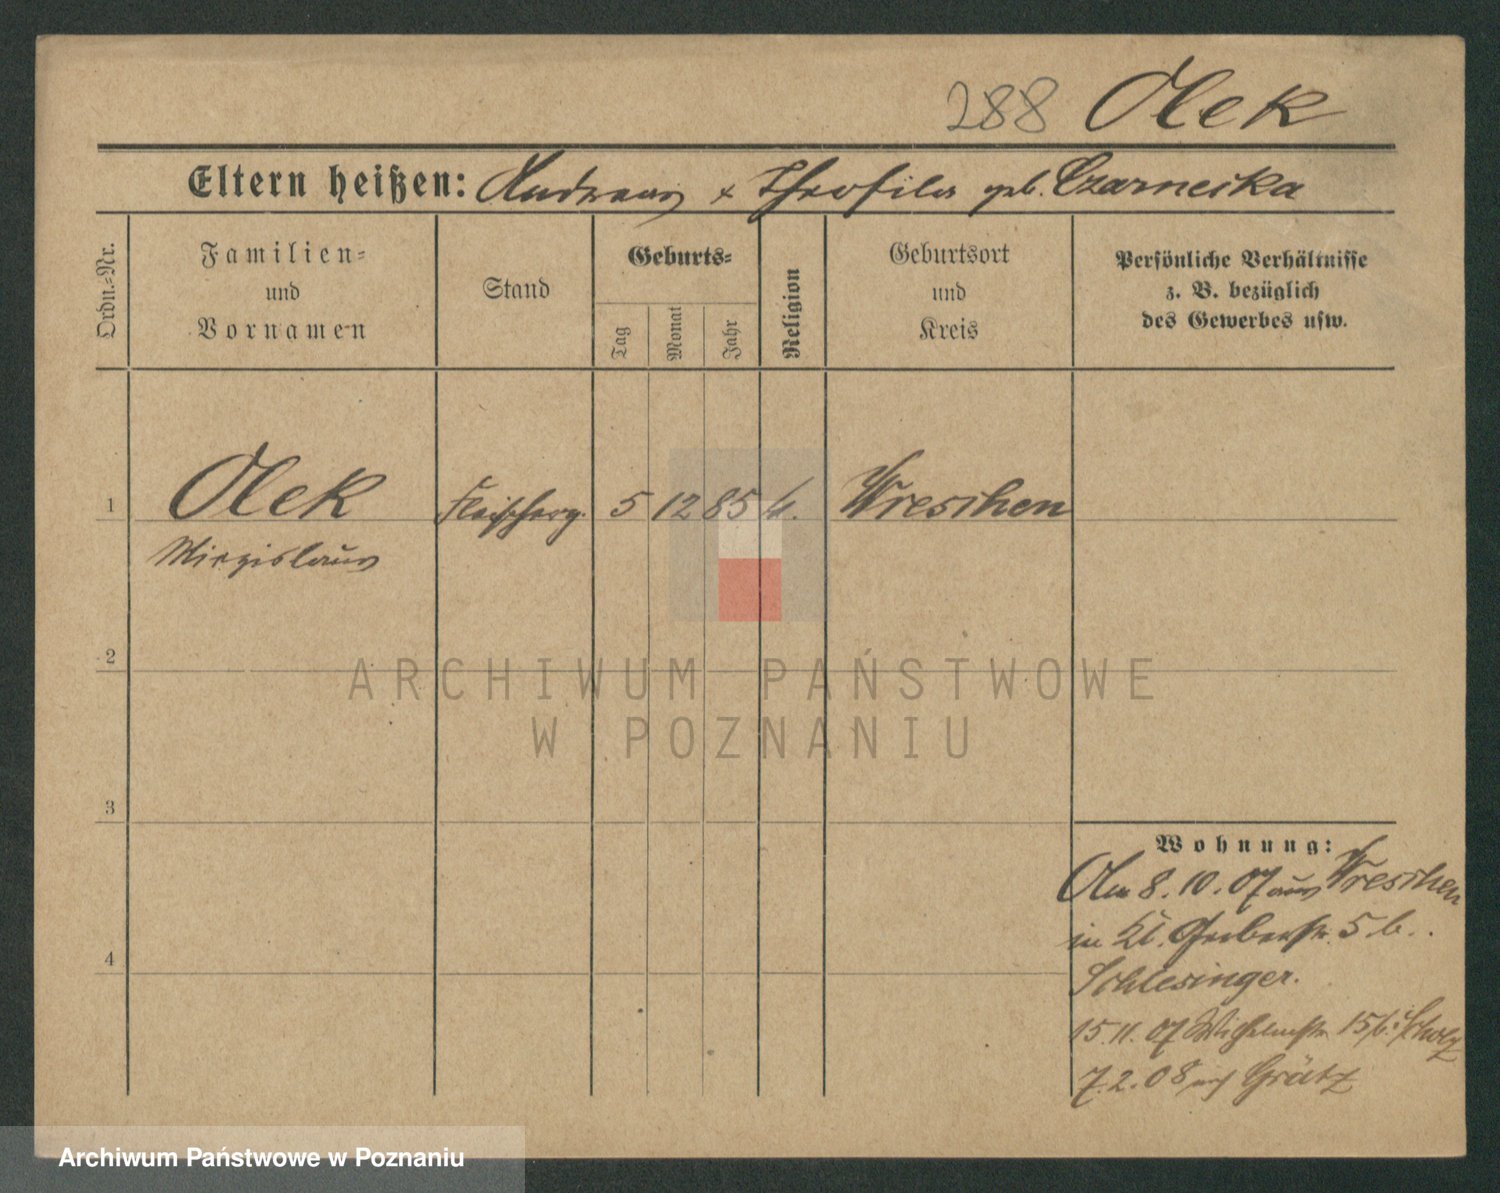 288 Olek
Eltern heißen: Andreas + Theofila geb. Czarnecka
Ordn.-Nr.
Familien-
und
Vornamen
Stand
Geburts-
Tag
Monat
Jahr
Religion
Geburtsort
und
Kreis
Persönliche Verhältnisse
z. B. bezüglich
des Gewerbes usw.
1 Olek Fleischerg. 5 12 85 k. Wreschen
Mieczislaus
2
3
4
Wohnung:
Am 8.10.07 aus Wreschen
in Kl. Gerberstr. 5 b.
Schlesinger.
15.11.07 Wilhelmstr. 15 b.
7.2.08 nach Grätz
ARCHIWUM PAŃSTWOWE
W POZNANIU
Archiwum Państwowe w Poznaniu